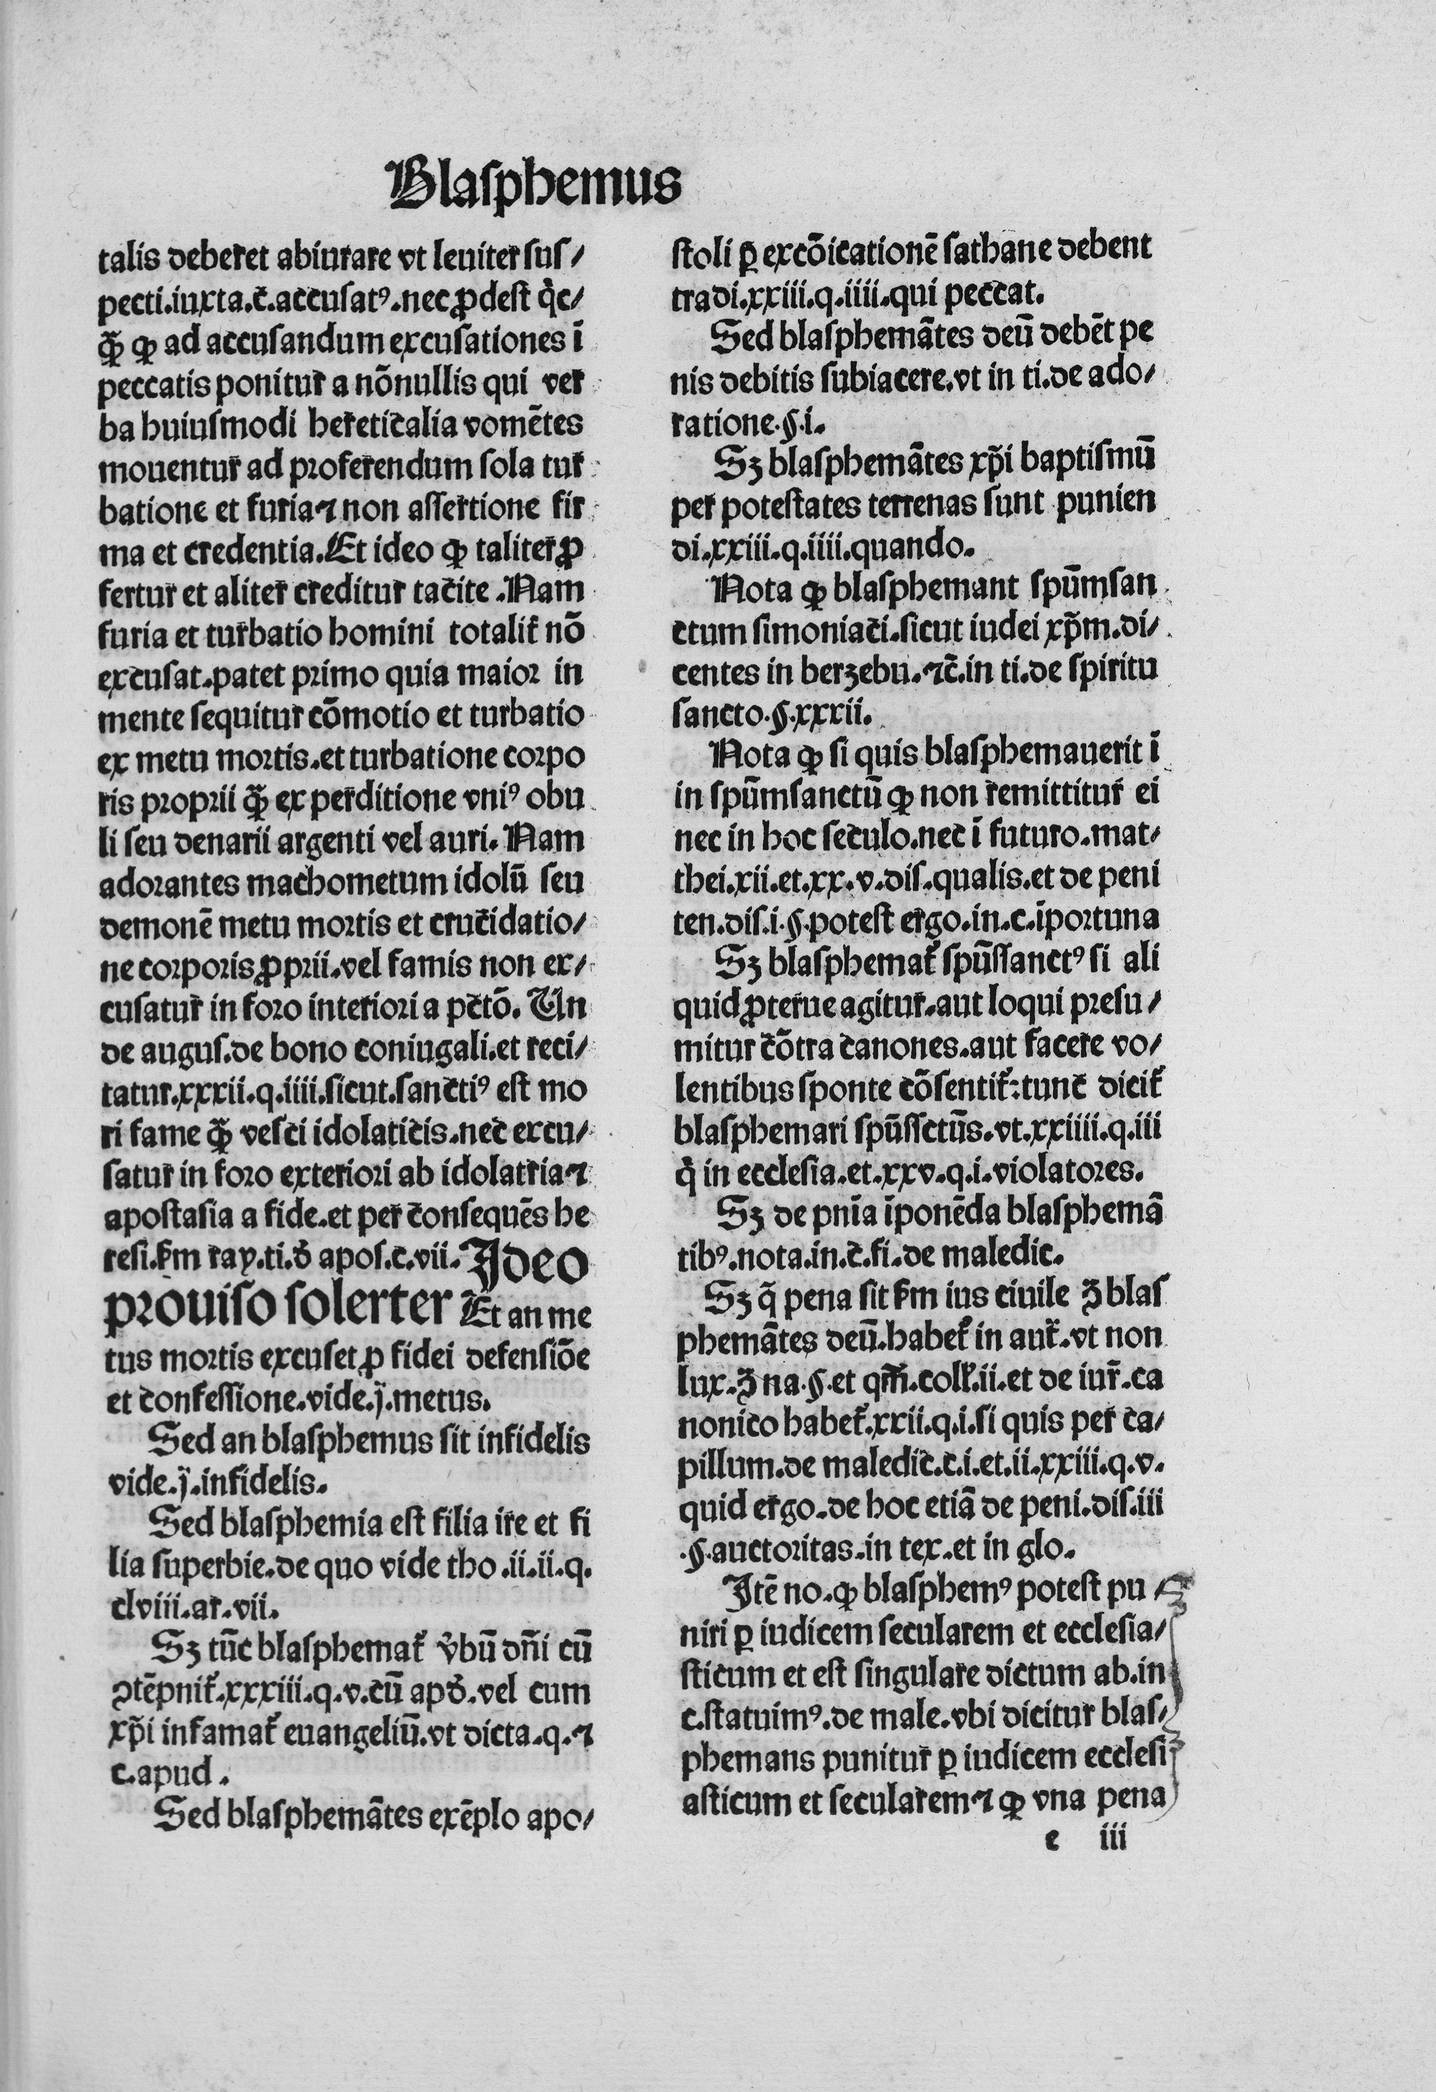 Blasphemus
talis deberet abiurare vt leuiter sus/
pecti.iuxta.c̄.accusatꝰ.nec ꝓdest qͥc/
ꝙ̄ ꝙ ad accusandum excusationes ī
peccatis ponitur a nōnullis qui ver
ba huiusmodi hereticalia vomētes
mouentur ad proferendum sola tur
batione et furia⁊ non assertione fir
ma et credentia.Et ideo ꝙ taliter ꝓ
fertur et aliter creditur tacite.Nam
furia et turbatio homini totalit̄ nō
excusat.patet primo quia maior in
mente sequitur cōmotio et turbatio
ex metu mortis.et turbatione corpo
ris proprii ꝙ̄ ex perditione vniꝰ obu
li seu denarii argenti vel auri.Nam
adorantes machometum idolū seu
demonē metu mortis et crucidatio/
ne corporis ꝓprii.vel famis non ex/
cusatur in foro interiori a pctō.Un
de augus.de bono coniugali.et reci/
tatur.xxxii.q.iiii.sicut.sanctiꝰ est mo
ri fame ꝙ̄ vesci idolaticis.nec excu/
satur in foro exteriori ab idolatria⁊
apostasia a fide.et per consequēs he
resi.ẜm ray.ti.đ apos.c.vii.Ideo
prouiso solerter Et an me
tus mortis excuset ꝓ fidei defensiōe
et confessione.vide.j̄.metus.
Sed an blasphemus sit infidelis
vide.j̄.infidelis.
Sed blasphemia est filia ire et fi
lia superbie.de quo vide tho.ii.ii.q.
clviii.ar.vii.
Sꝫ tūc blasphemat᷑ v̄bū dn̄i cū
ꝯtēpnit᷑.xxxiii.q.v.cū apđ.vel cum
xp̄i infamat᷑ euangeliū.vt dicta.q.⁊
c.apud.
Sed blasphemātes exēplo apo/
stoli ꝑ excōicationē sathane debent
tradi.xxiii.q.iiii.qui peccat.
Sed blasphemātes deū debēt pe
nis debitis subiacere.vt in ti.de ado/
ratione.§.i.
Sꝫ blasphemātes xp̄i baptismū
per potestates terrenas sunt punien
di.xxiii.q.iiii.quando.
Nota ꝙ blasphemant spūmsan
ctum simoniaci.sicut iudei xp̄m.di/
centes in berzebu.⁊c̄.in ti.de spiritu
sancto.§.xxxii.
Nota ꝙ si quis blasphemauerit ī
in spūmsanctū ꝙ non remittitur ei
nec in hoc seculo.nec ī futuro.mat/
thei.xii.et.xx.v.dis.qualis.et de peni
ten.dis.i.§.potest ergo.in.c.īportuna
Sꝫ blasphemat᷑ spūssanctꝰ si ali
quid ꝓterue agitur.aut loqui presu/
mitur cōtra canones.aut facere vo/
lentibus sponte cōsentit᷑:tunc dicit᷑
blasphemari spūssctūs.vt.xxiiii.q.iii
qͥ in ecclesia.et.xxv.q.i.violatores.
Sꝫ de pnīa īponēda blasphemā
tibꝰ.nota.in.c̄.fi.de maledic.
Sꝫ q̄ pena sit ẜm ius ciuile ꝫ blas
phemātes deū.habet᷑ in aut᷑.vt non
lux.ꝫ na.§.et qm̄.coll᷑.ii.et de iur᷑.ca
nonico habet᷑.xxii.q.i.si quis per ca/
pillum.de maledic̄.c.i.et.ii.xxiii.q.v.
quid ergo.de hoc etiā de peni.dis.iii
.§.auctoritas.in tex.et in glo.
Itē no.ꝙ blasphemꝰ potest pu/
niri ꝑ iudicem secularem et ecclesia/
sticum et est singulare dictum ab.in
c.statuimꝰ.de male.vbi dicitur blas/
phemans punitur ꝑ iudicem ecclesi
asticum et secularem⁊ ꝙ vna pena
e iii